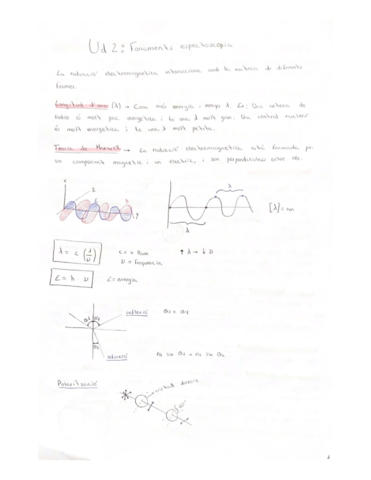 Ud 2: Fonaments espectroscòpia
La radiació electromagnètica interacciona amb la matèria de diferents
formes.
Longitud d'ona (λ) → Com més energia menys λ. Ex: Una antena de
ràdio és molt poc energètica i té una λ molt gran. Una central nuclear
és molt energètica i té una λ molt petita.
Teoria de Maxwell → La radiació electromagnètica està formada per
un component magnètic i un elèctric, i són perpendiculars entre ells.
λ
λ
[λ] = nm
λ = c
E = h · ν
ν = freqüència
E = energia
↑ λ → ↓ ν
reflexió
refracció
Polarització